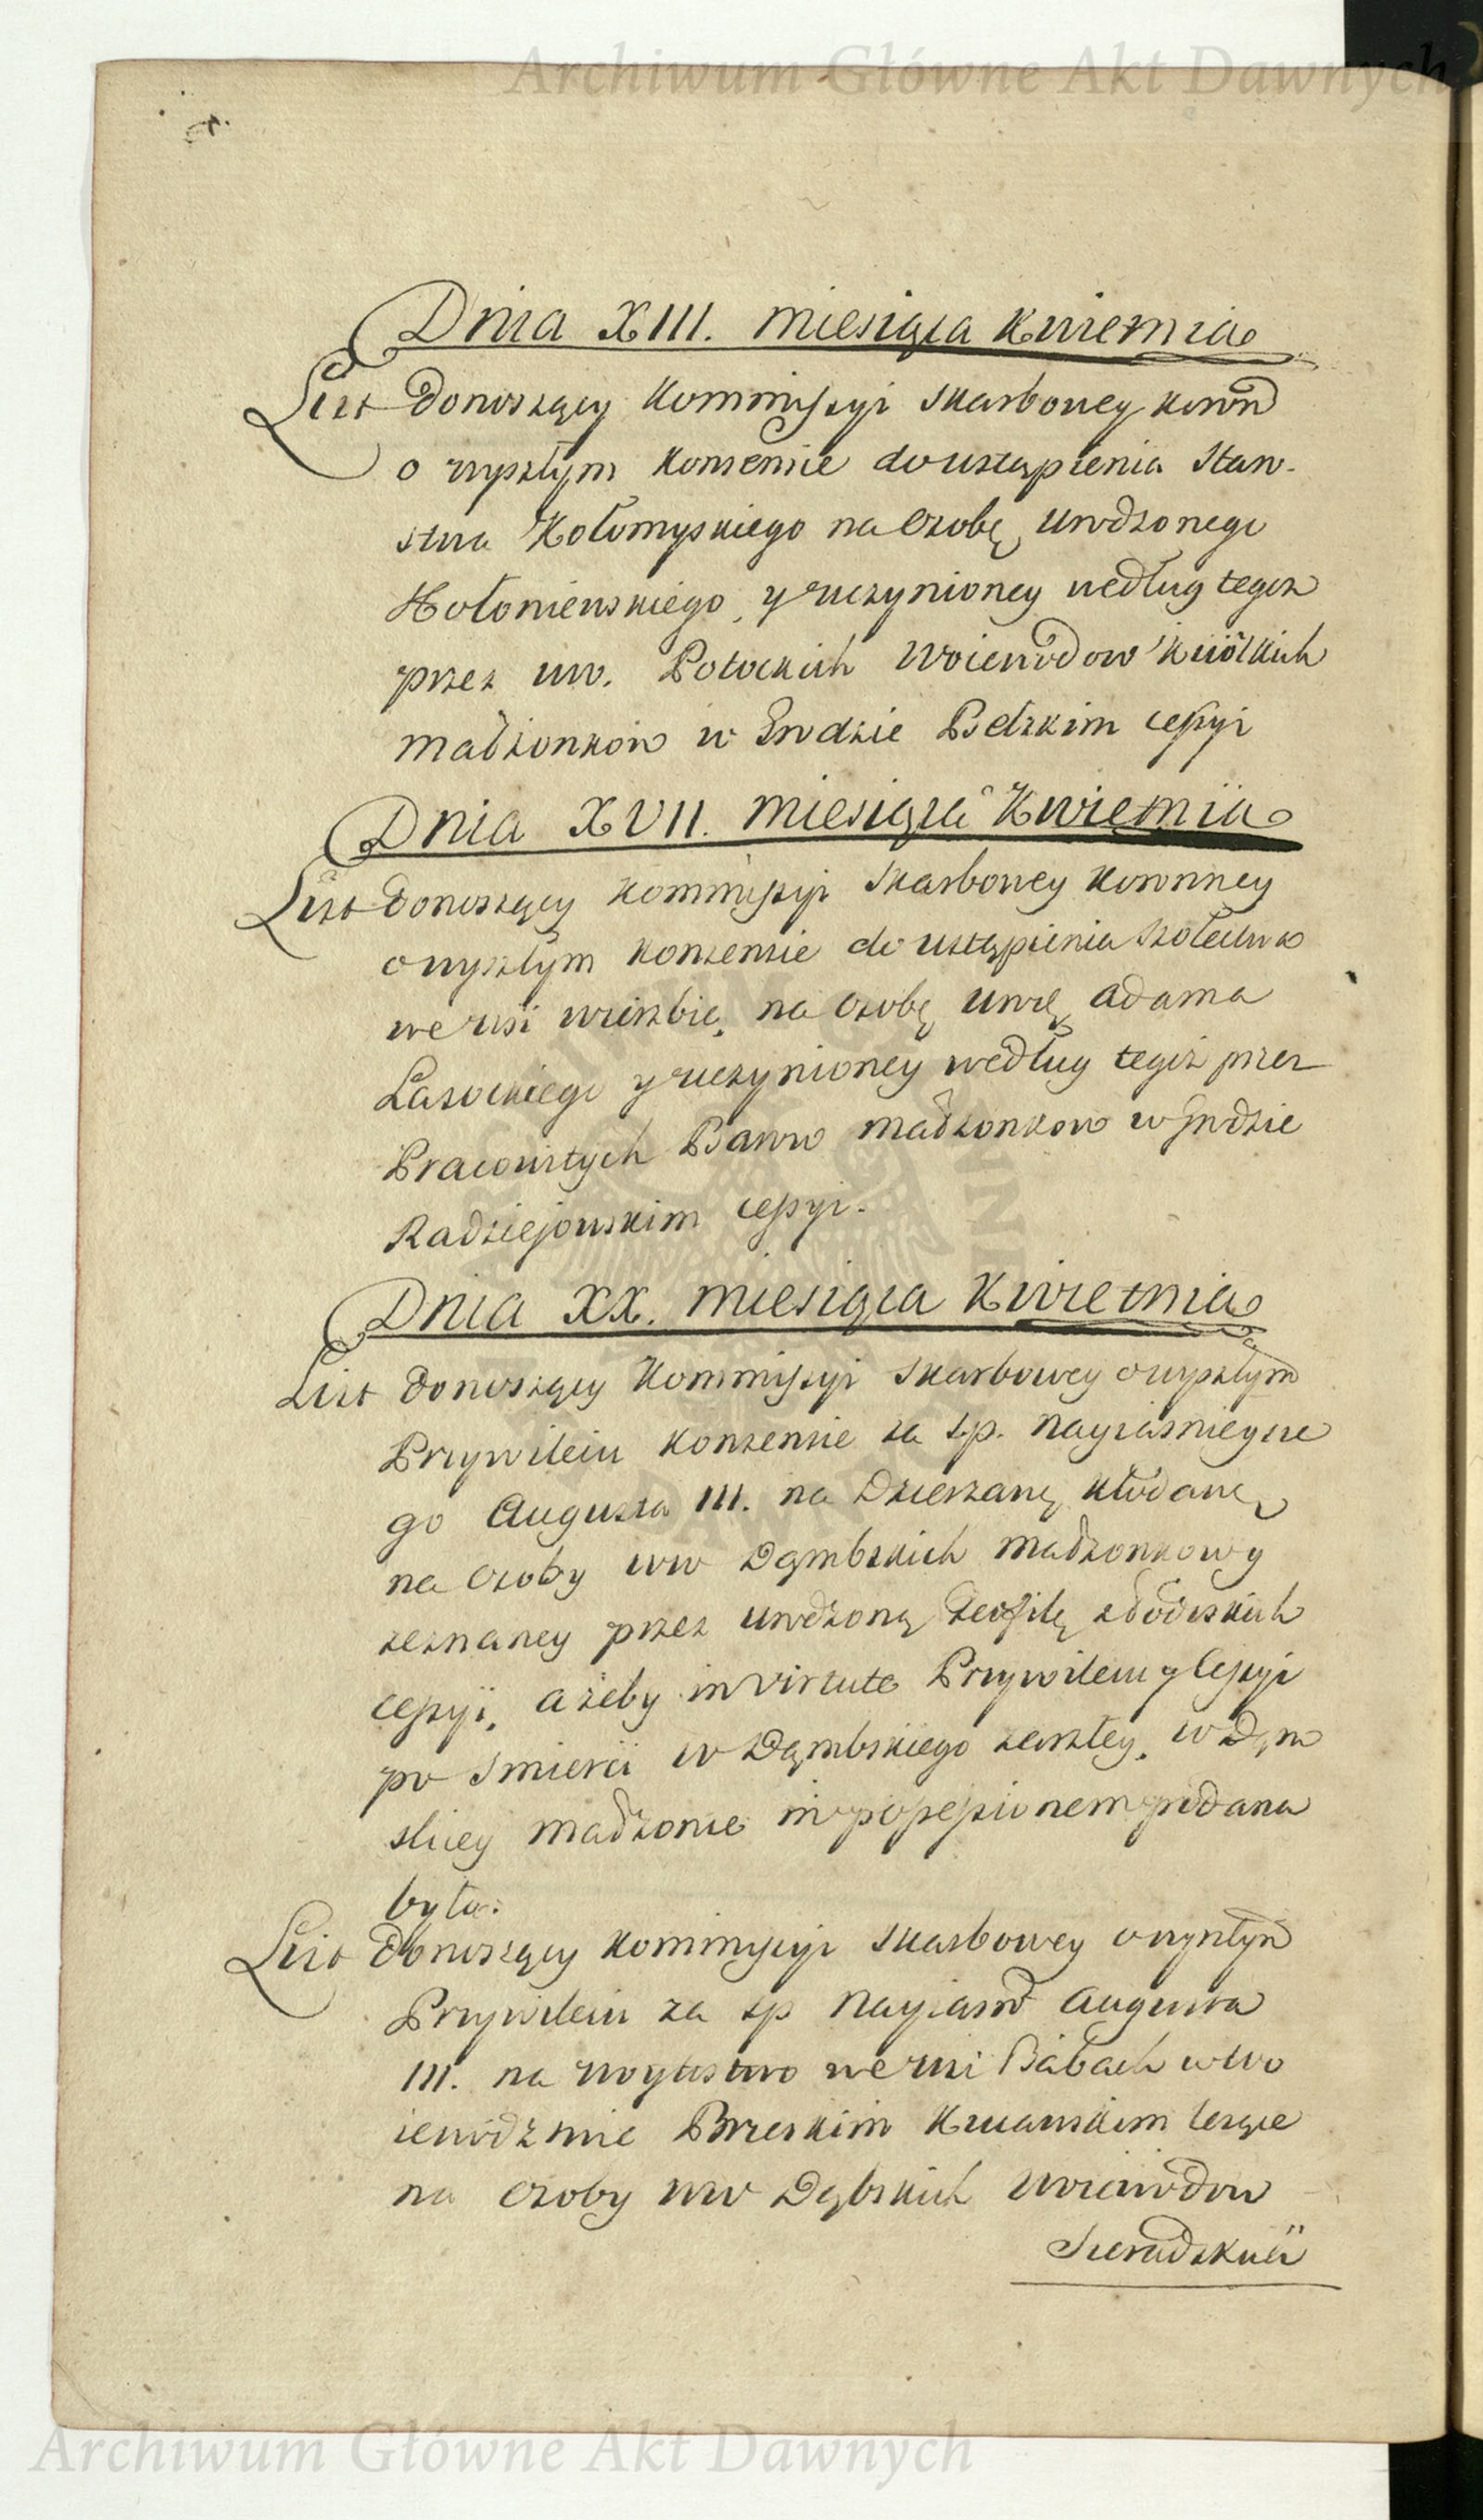 Archiwum Główne Akt Dawnych
Dnia XIII. miesiąca Kwietnia
List donoszący Kommissyi Skarbowey koron
o wyszłym konsensie do ustąpienia Staro-
stwa Kołomyskiego na Osobę Urodzonego
Hołoniewskiego, y uczynioney według tegoż
przez uw. Potockich Woiewodow Kiiowskich
małżonkow w Grodzie Bełzkim cessyi
Dnia XVII. miesiąca Kwietnia
List donoszący Kommissyi Skarbowey Koronney
o wyszłym konsensie do ustąpienia Szołectwa
we wsi wierzbie, na Osobę Uro Adama
Lasockiego y uczynioney według tegoż przez
Pracowitych małżonkow w Grodzie
Radziejowskim cessyi.
Dnia XX. miesiąca Kwietnia
List donoszący Kommissyi Skarbowey o wyszłym
Przywileiu Konsensie za s.p. Nayiasnieysze
go Augusta III. na Dzierżawę Kłodawę
na Osoby ww Dąmbskich małżonkowy
zeznaney przez Urodzoną Teofilę
cessyi, ażeby in virtute Przywileiu y Cessyi
po smierci w Dąmbskiego zaszłey, w Dąm
skiey małżonce in possessionem podana
była.
List donoszący Kommissyi Skarbowey o wyszłym
Przywileiu za sp Nayiasn Augusta
III. na woytostwo we wsi Babach w Wo
iewodztwie Brzeskim Kuiawskim leżące
na Osoby ww Dąbskich Woiewodow
Sieradzkich
Archiwum Główne Akt Dawnych